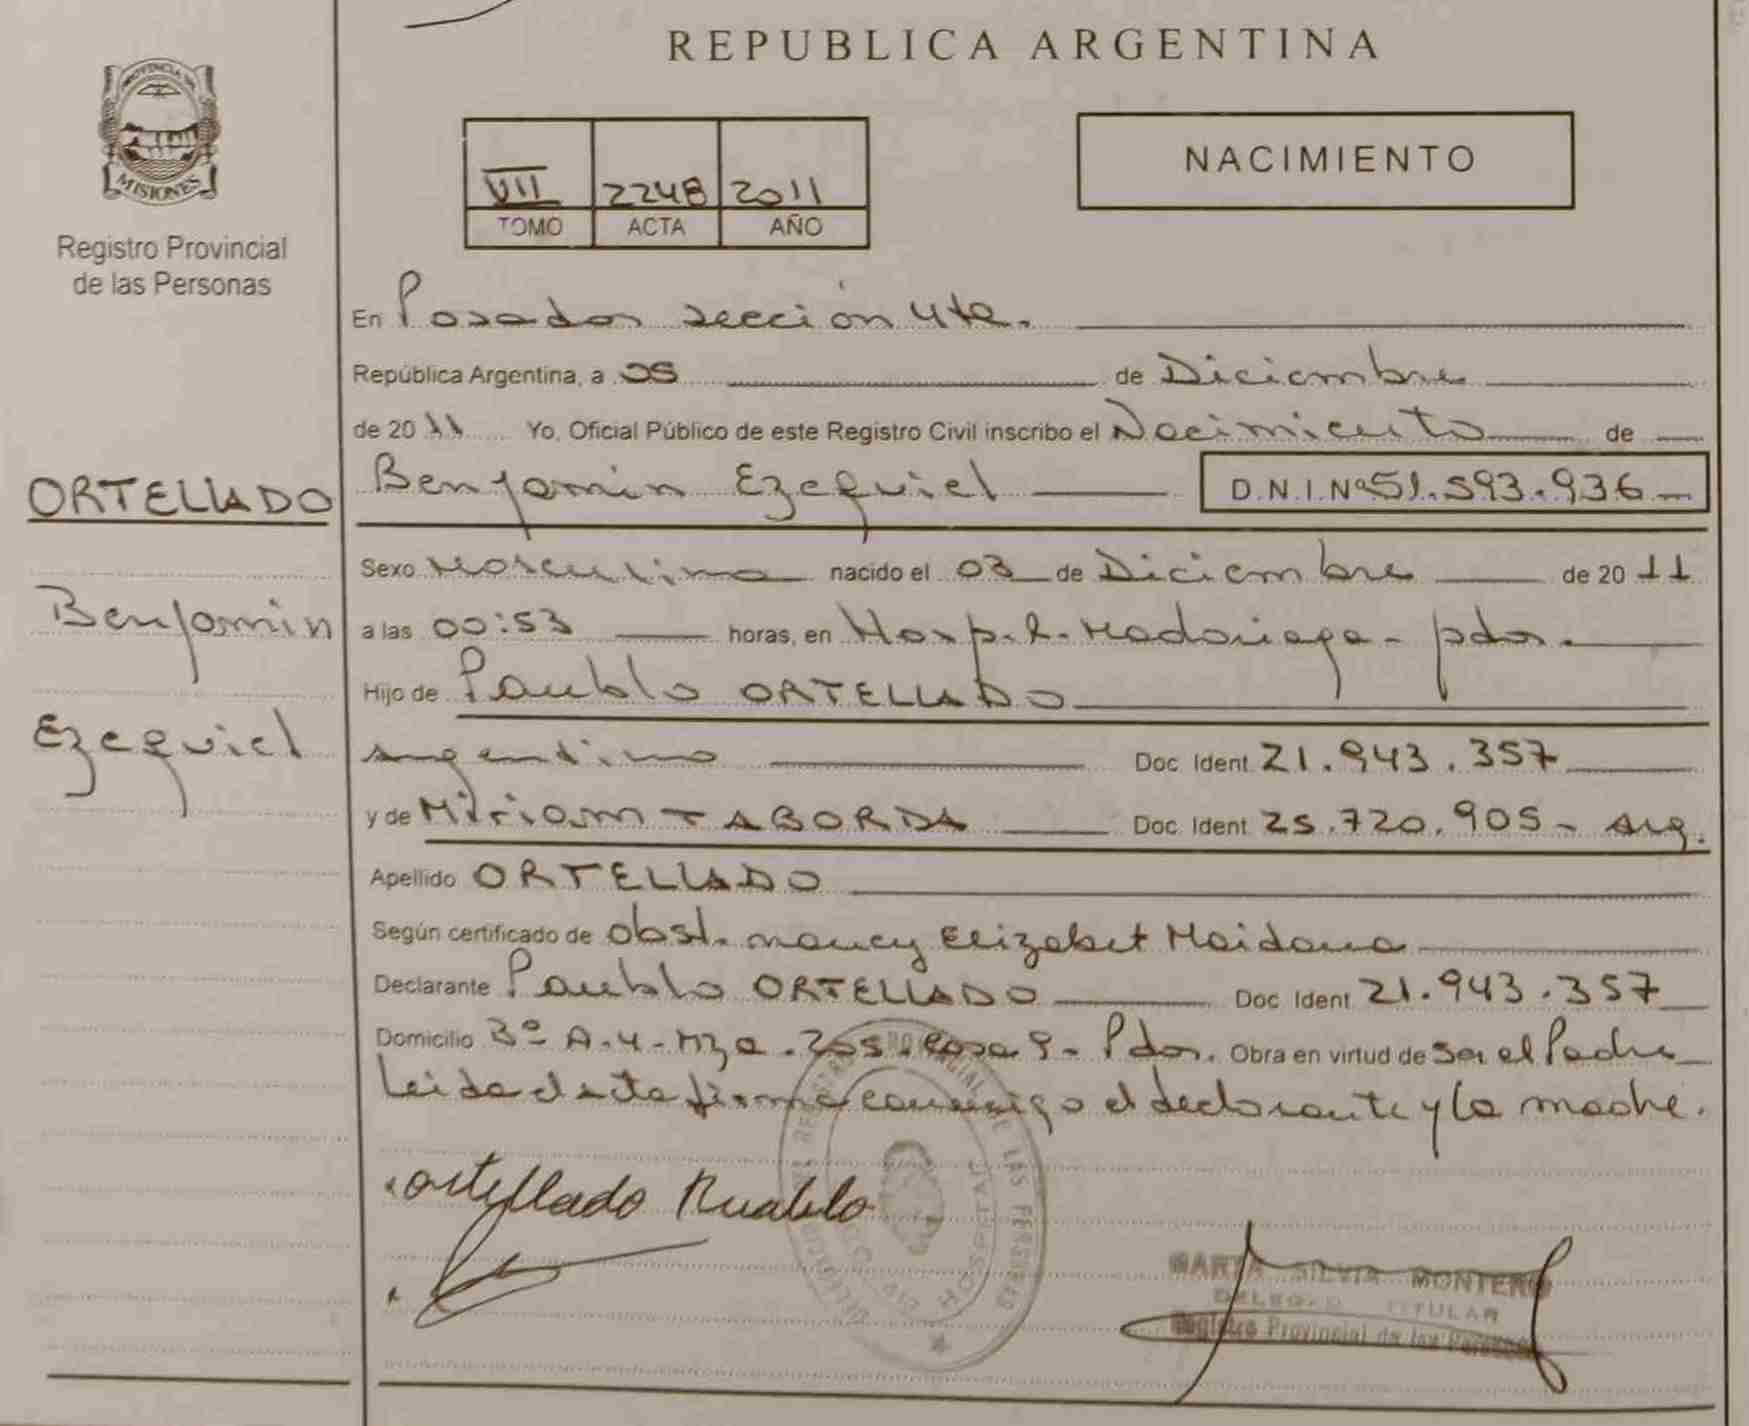 REPUBLICA ARGENTINA
PROVINCIA DE
MISIONES
Registro Provincial
de las Personas
VII 2248 2011
TOMO ACTA AÑO
NACIMIENTO
En Posadas sección 4ta.
República Argentina, a 05 de Diciembre
de 2011 Yo, Oficial Público de este Registro Civil inscribo el Nacimiento de
Benjamin Ezequiel D.N.I. Nº 51.593.936
ORTELLADO
Benjamin
Ezequiel
Sexo Masculino nacido el 03 de Diciembre de 2011
a las 00:53 horas, en Hosp. R. Madariaga - pdas.
Hijo de Paublo ORTELLADO
argentino Doc. Ident. 21.943.357
y de Miriam TABORDA Doc. Ident. 25.720.905 - arg.
Apellido ORTELLADO
Según certificado de Obst. Nancy Elizabet Maidana
Declarante Paublo ORTELLADO Doc. Ident. 21.943.357
Domicilio Bº A-4 - Mza. 205. Casa 9 - Pdas. Obra en virtud de ser el Padre
Leida el acta firma conmigo el declarante y la madre.
Ortellado Puablo
REGISTRO PROVINCIAL DE LAS PERSONAS
HOSPITAL
MARTA SILVIA MONTERO
DELEGADA TITULAR
Registro Provincial de las Personas